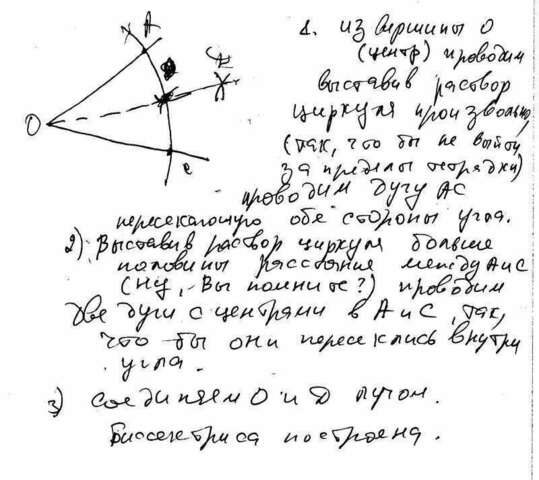 A
D
O
C
1. из вершины О
(центр) проводим
выставив раствор
циркуля произвольно,
(так, что бы не выйти
за пределы тетрадки)
проводим дугу АС
пересекающую обе стороны угла.
2) Выставив раствор циркуля больше
половины расстояние между А и С
(ну, Вы помните?) проводим
две дуги с центрами в А и С, так,
что бы они пересеклись внутри
угла.
3) Соединяем О и D лучом.
Биссектриса построена.